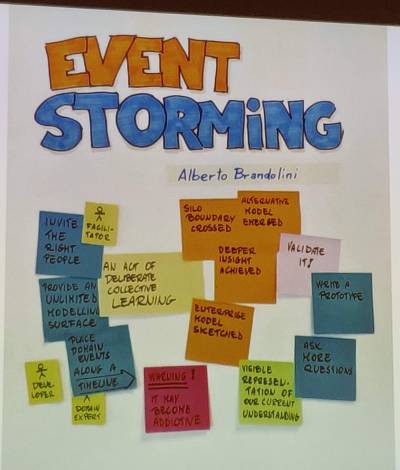 EVENT
STORMiNG
Alberto Brandolini
INVITE
THE
RIGHT
PEOPLE
FACILI-
TATOR
PROVIDE AN
UNLIMITED
MODELLING
SURFACE
PLACE
DOMAIN
EVENTS
ALONG A
TIMELINE
DEVE
LOPER
DOMAIN
EXPERT
AN ACT OF
DELIBERATE
COLLECTIVE
LEARNING
WARNING!
IT MAY
BECOME
ADDICTIVE
SILO
BOUNDARY
CROSSED
ALTERNATIVE
MODEL
EMERGED
DEEPER
INSIGHT
ACHIEVED
ENTERPRISE
MODEL
SKETCHED
VALIDATE
IT!
WRITE A
PROTOTYPE
ASK
MORE
QUESTIONS
VISIBLE
REPRESEN-
TATION OF
OUR CURRENT
UNDERSTANDING